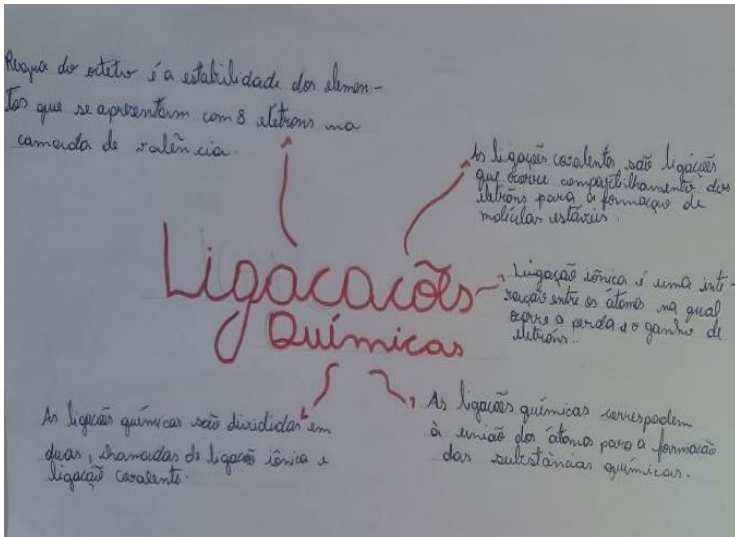 Regra do octeto é a estabilidade dos elemen-
tos que se apresentam com 8 elétrons na
camada de valência.
As ligações covalentes são ligações
que ocorre compartilhamento dos
elétrons para a formação de
moléculas estáveis.
Ligacacões
Químicas
Lingação iônica é uma inte-
ração entre os átomos na qual
ocorre a perda e o ganho de
elétrons.
As ligacões químicas são divididas em
duas, chamadas de ligação iônica e
ligação covalente.
As ligacões químicas correspodem
à união dos átomos para a formacão
das substâncias químicas.